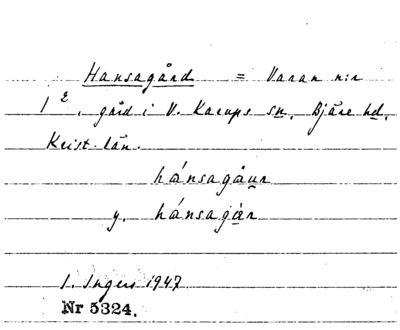 Hansagård = Varan n:r
1 2, gård i V. Karups sn, Bjäre hd,
Krist. län.
hánsagåur
y. hánsagår
I. Ingers 1947
Nr 5324.